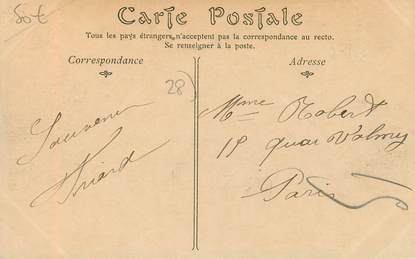 50 €
Carte Postale
Tous les pays étrangers, n'acceptent pas la correspondance au recto.
Se renseigner à la poste.
Correspondance
Adresse
28)
Souvenir
Mme Robert
18 quai Valmy
Paris